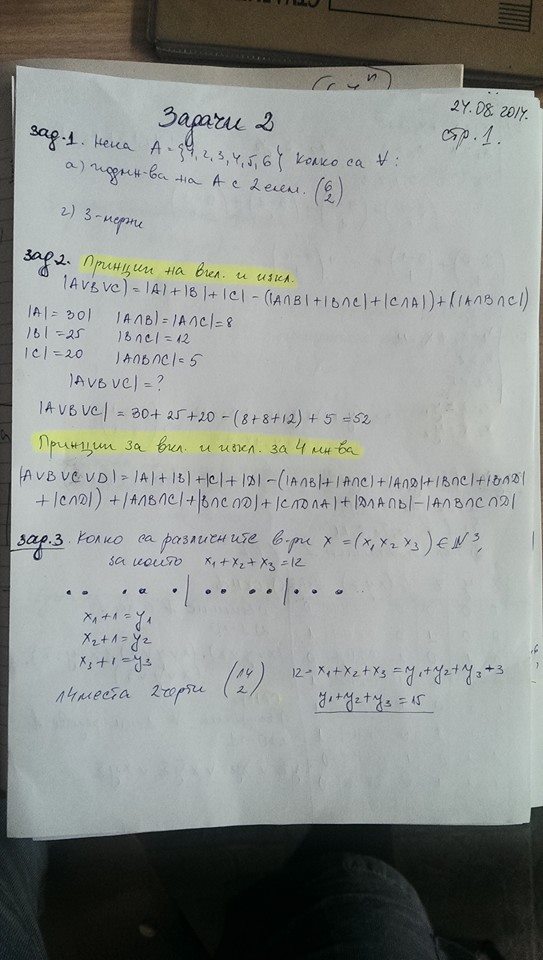 Задачи 2
24.08.2014.
стр. 1.
зад. 1. Нека A = {1, 2, 3, 4, 5, 6} Колко са ∀:
а) подмн-ва на A с 2 елем. (6 2)
г) 3-
зад 2. Принцип на вкл. и изкл.
|A∪B∪C| = |A| + |B| + |C| - (|A∩B| + |B∩C| + |C∩A|) + (|A∩B∩C|)
|A| = 30| |A∩B| = |A∩C| = 8
|B| = 25 |B∩C| = 12
|C| = 20 |A∩B∩C| = 5
|A∪B∪C| = ?
|A∪B∪C| = 30 + 25 + 20 - (8 + 8 + 12) + 5 = 52
Принцип за вкл. и изкл. за 4 мн-ва
|A∪B∪C∪D| = |A| + |B| + |C| + |D| - (|A∩B| + |A∩C| + |A∩D| + |B∩C| + |B∩D|
+ |C∩D|) + |A∩B∩C| + |B∩C∩D| + |C∩D∩A| + |D∩A∩B| - |A∩B∩C∩D|
зад. 3 Колко са различните в-ри x = (x1 x2 x3) ∈ N³,
за които x1 + x2 + x3 = 12
x1 + 1 = y1
x2 + 1 = y2
x3 + 1 = y3
14 места 2 черти (14 2) 12 = x1 + x2 + x3 = y1 + y2 + y3 + 3
y1 + y2 + y3 = 15